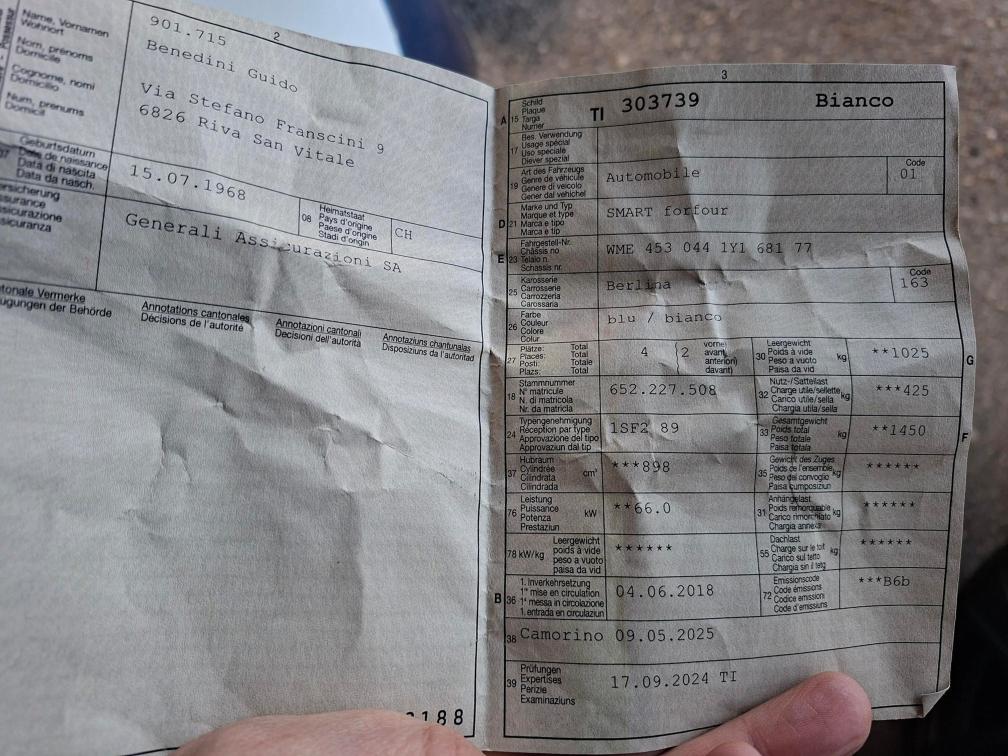 2
Name, Vornamen
Wohnort
Nom, prénoms
Domicile
Cognome, nomi
Domicilio
Num, prenums
Domicil
901.715
Benedini Guido
Via Stefano Franscini 9
6826 Riva San Vitale
Geburtsdatum
Date de naissance
Data di nascita
Data da nasch.
15.07.1968
08
Heimatstaat
Pays d'origine
Paese d'origine
Stadi d'origin
CH
Generali Assicurazioni SA
Annotations cantonales
Décisions de l'autorité
Annotazioni cantonali
Decisioni dell'autorità
Annotaziuns chantunalas
Disposiziuns da l'autoritad
188
3
A 15
Schild
Plaque
Targa
Numer
TI 303739 Bianco
17
Bes. Verwendung
Usage spécial
Uso speciale
Diever spezial
19
Art des Fahrzeugs
Genre de véhicule
Genere di veicolo
Gener dal vehichel
Automobile
Code
01
D 21
Marke und Typ
Marque et type
Marca e tipo
Marca e tip
SMART forfour
E 23
Fahrgestell-Nr.
Châssis no
Telaio n.
Schassis nr.
WME 453 044 1Y1 681 77
25
Karosserie
Carrosserie
Carrozzeria
Carossaria
Berlina
Code
163
26
Farbe
Couleur
Colore
Colur
blu / bianco
27
Plätze: Total
Places: Total
Posti: Totale
Plazs: Total
4 (2
vorne)
avant)
anteriori)
davant)
30
Leergewicht
Poids à vide
Peso a vuoto
Paisa da vid
kg
**1025
G
18
Stammnummer
N° matricule
N. di matricola
Nr. da matricla
652.227.508
32
Nutz-/Sattellast
Charge utile/sellette
Carico utile/sella
Chargia utila/sella
kg
***425
24
Typengenehmigung
Réception par type
Approvazione del tipo
Approvaziun dal tip
1SF2 89
33
Gesamtgewicht
Poids total
Peso totale
Paisa totala
kg
**1450
F
37
Hubraum
Cylindrée
Cilindrata
Cilindrada
cm³
***898
35
Gewicht des Zuges
Poids de l'ensemble
Peso del convoglio
Paisa cumposiziun
kg
******
76
Leistung
Puissance
Potenza
Prestaziun
kW
**66.0
31
Anhängelast
Poids remorquable
Carico rimorchiato
Chargia annexa
kg
******
78 kW/kg
Leergewicht
poids à vide
peso a vuoto
paisa da vid
******
55
Dachlast
Charge sur le toit
Carico sul tetto
Chargia sin il tetg
kg
******
B 36
1. Inverkehrsetzung
1re mise en circulation
1a messa in circolazione
1. entrada en circulaziun
04.06.2018
72
Emissionscode
Code émissions
Codice emissioni
Code d'emissiuns
***B6b
38
Camorino 09.05.2025
39
Prüfungen
Expertises
Perizie
Examinaziuns
17.09.2024 TI